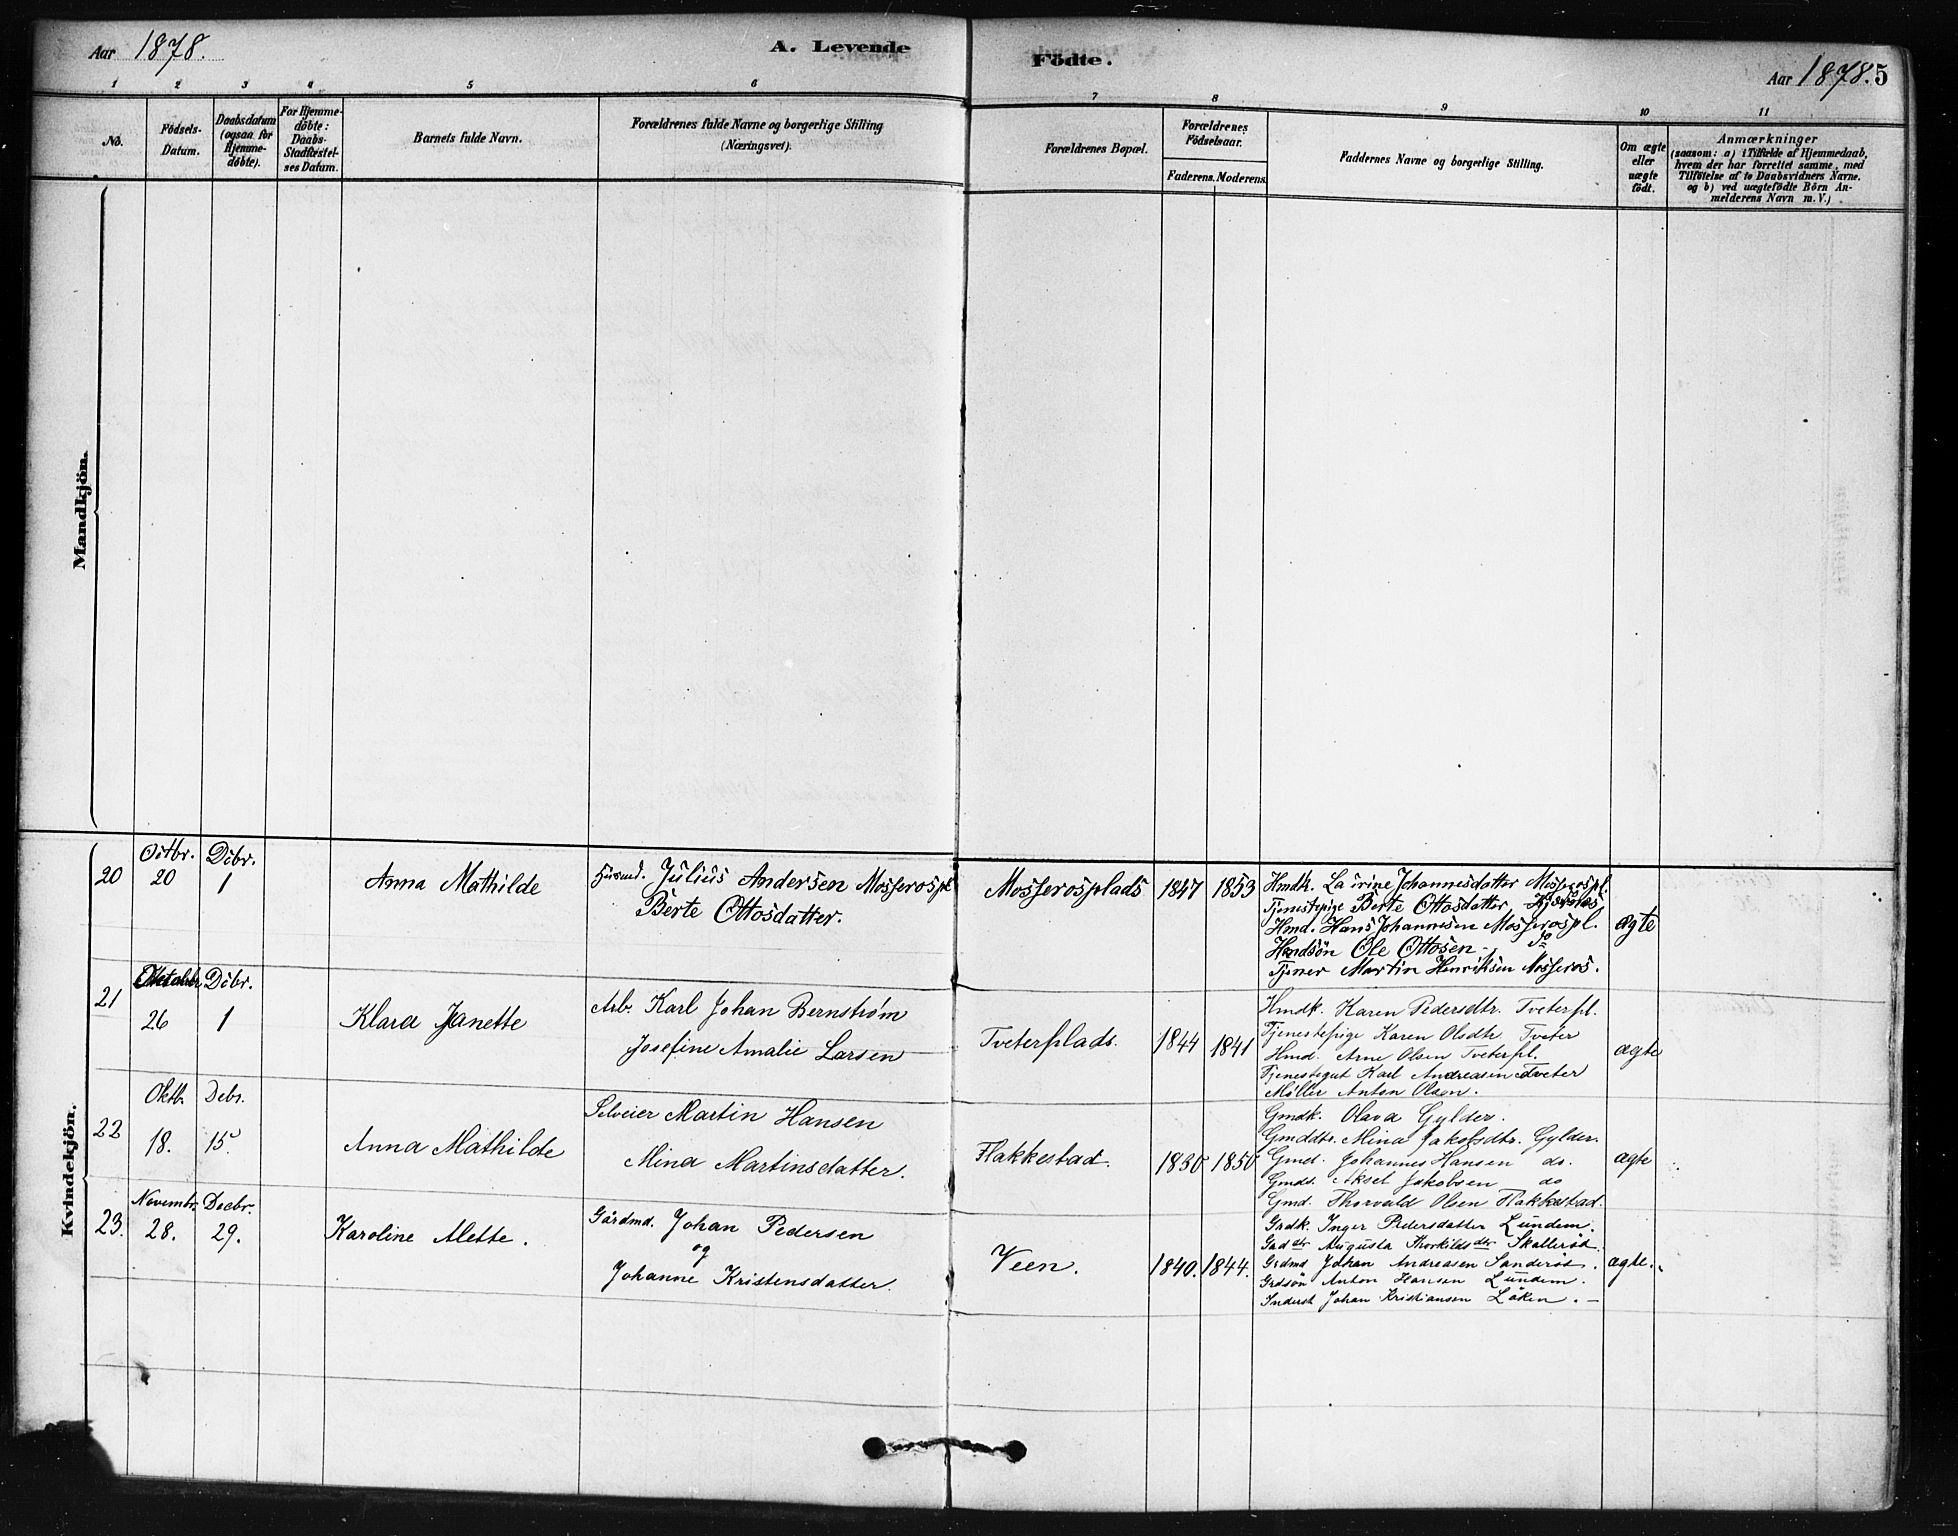 Aar 1878.
A. Levende
Födte.
Aar 1878. 5
1 2 3 4 5 6 7 8 9 10 11
No.
Födsels-
Datum.
Daabsdatum
(ogsaa for
Hjemme-
döbte).
For Hjemme-
döbte:
Daabs-
Stadfæstel-
ses Datum.
Barnets fulde Navn.
Forældrenes fulde Navne og borgerlige Stilling
(Næringsvei).
Forældrenes Bopæl.
Forældrenes
Födselsaar.
Faderens. Moderens.
Faddernes Navne og borgerlige Stilling.
Om ægte
eller
uægte
födt.
Anmærkninger
(saasom: a) i Tilfælde af Hjemmedaab,
hvem der har forrettet samme, med
Tilföielse af to Daabsvidners Navne.
og b) ved uægtefödte Börn An-
melderens Navn m. V.)
Mandkjön.
Kvindekjön.
20
Octbr.
20
Dcbr.
1
Anna Mathilde
Husmd. Julius Andersen Mosserospl
Berte Ottosdatter.
Mosserosplads
1847
1853
Hmdk. Johannesdatter Mosserospl.
Tjenestepige Berte Ottosdatter
Hmd. Hans Johannesen Mosserospl.
Hmdsön Ole Ottosen - do
Tjener Martin Henriksen Mosseros.
ægte
21
26
Dcbr.
1
Klara Janette
Arb. Karl Johan Bernstrøm
Josefine Amalie Larsen
Tveterplads.
1844
1841
Hmdk. Karen Pedersdtr. Tveterpl.
Tjenestepige Karen Olsdtr Tveter
Hmd. Arne Olsen Tveterpl.
Tjenestegut Karl Andreasen Tveter
Møller Anton Olsen.
ægte
22
Oktb.
18.
Debr.
15.
Anna Mathilde
Selveier Martin Hansen
Mina Martinsdatter.
Flakkestad.
1830
1850
Gmdk. Olava Gylder.
Gmddtr. Mina Jakobsdtr. Gylder.
Gmd. Johannes Hansen do.
Gmds. Aksel Jakobsen do
Gmd. Thorvald Olsen Flakkestad.
ægte
23.
Novembr.
28.
Decbr.
29.
Karoline Alette.
Gårdmd. Johan Pedersen
og
Johanne Kristensdatter.
Veen.
1840.
1844.
Grdk. Inger Pedersdatter Lundem.
Augusta Thorkildsdtr Skallerød.
Grdmd Johan Andreasen Sanderød.
Grdsön Anton Hansen Lundem.
Inderst Johan Kristiansen Löken. -
ægte.